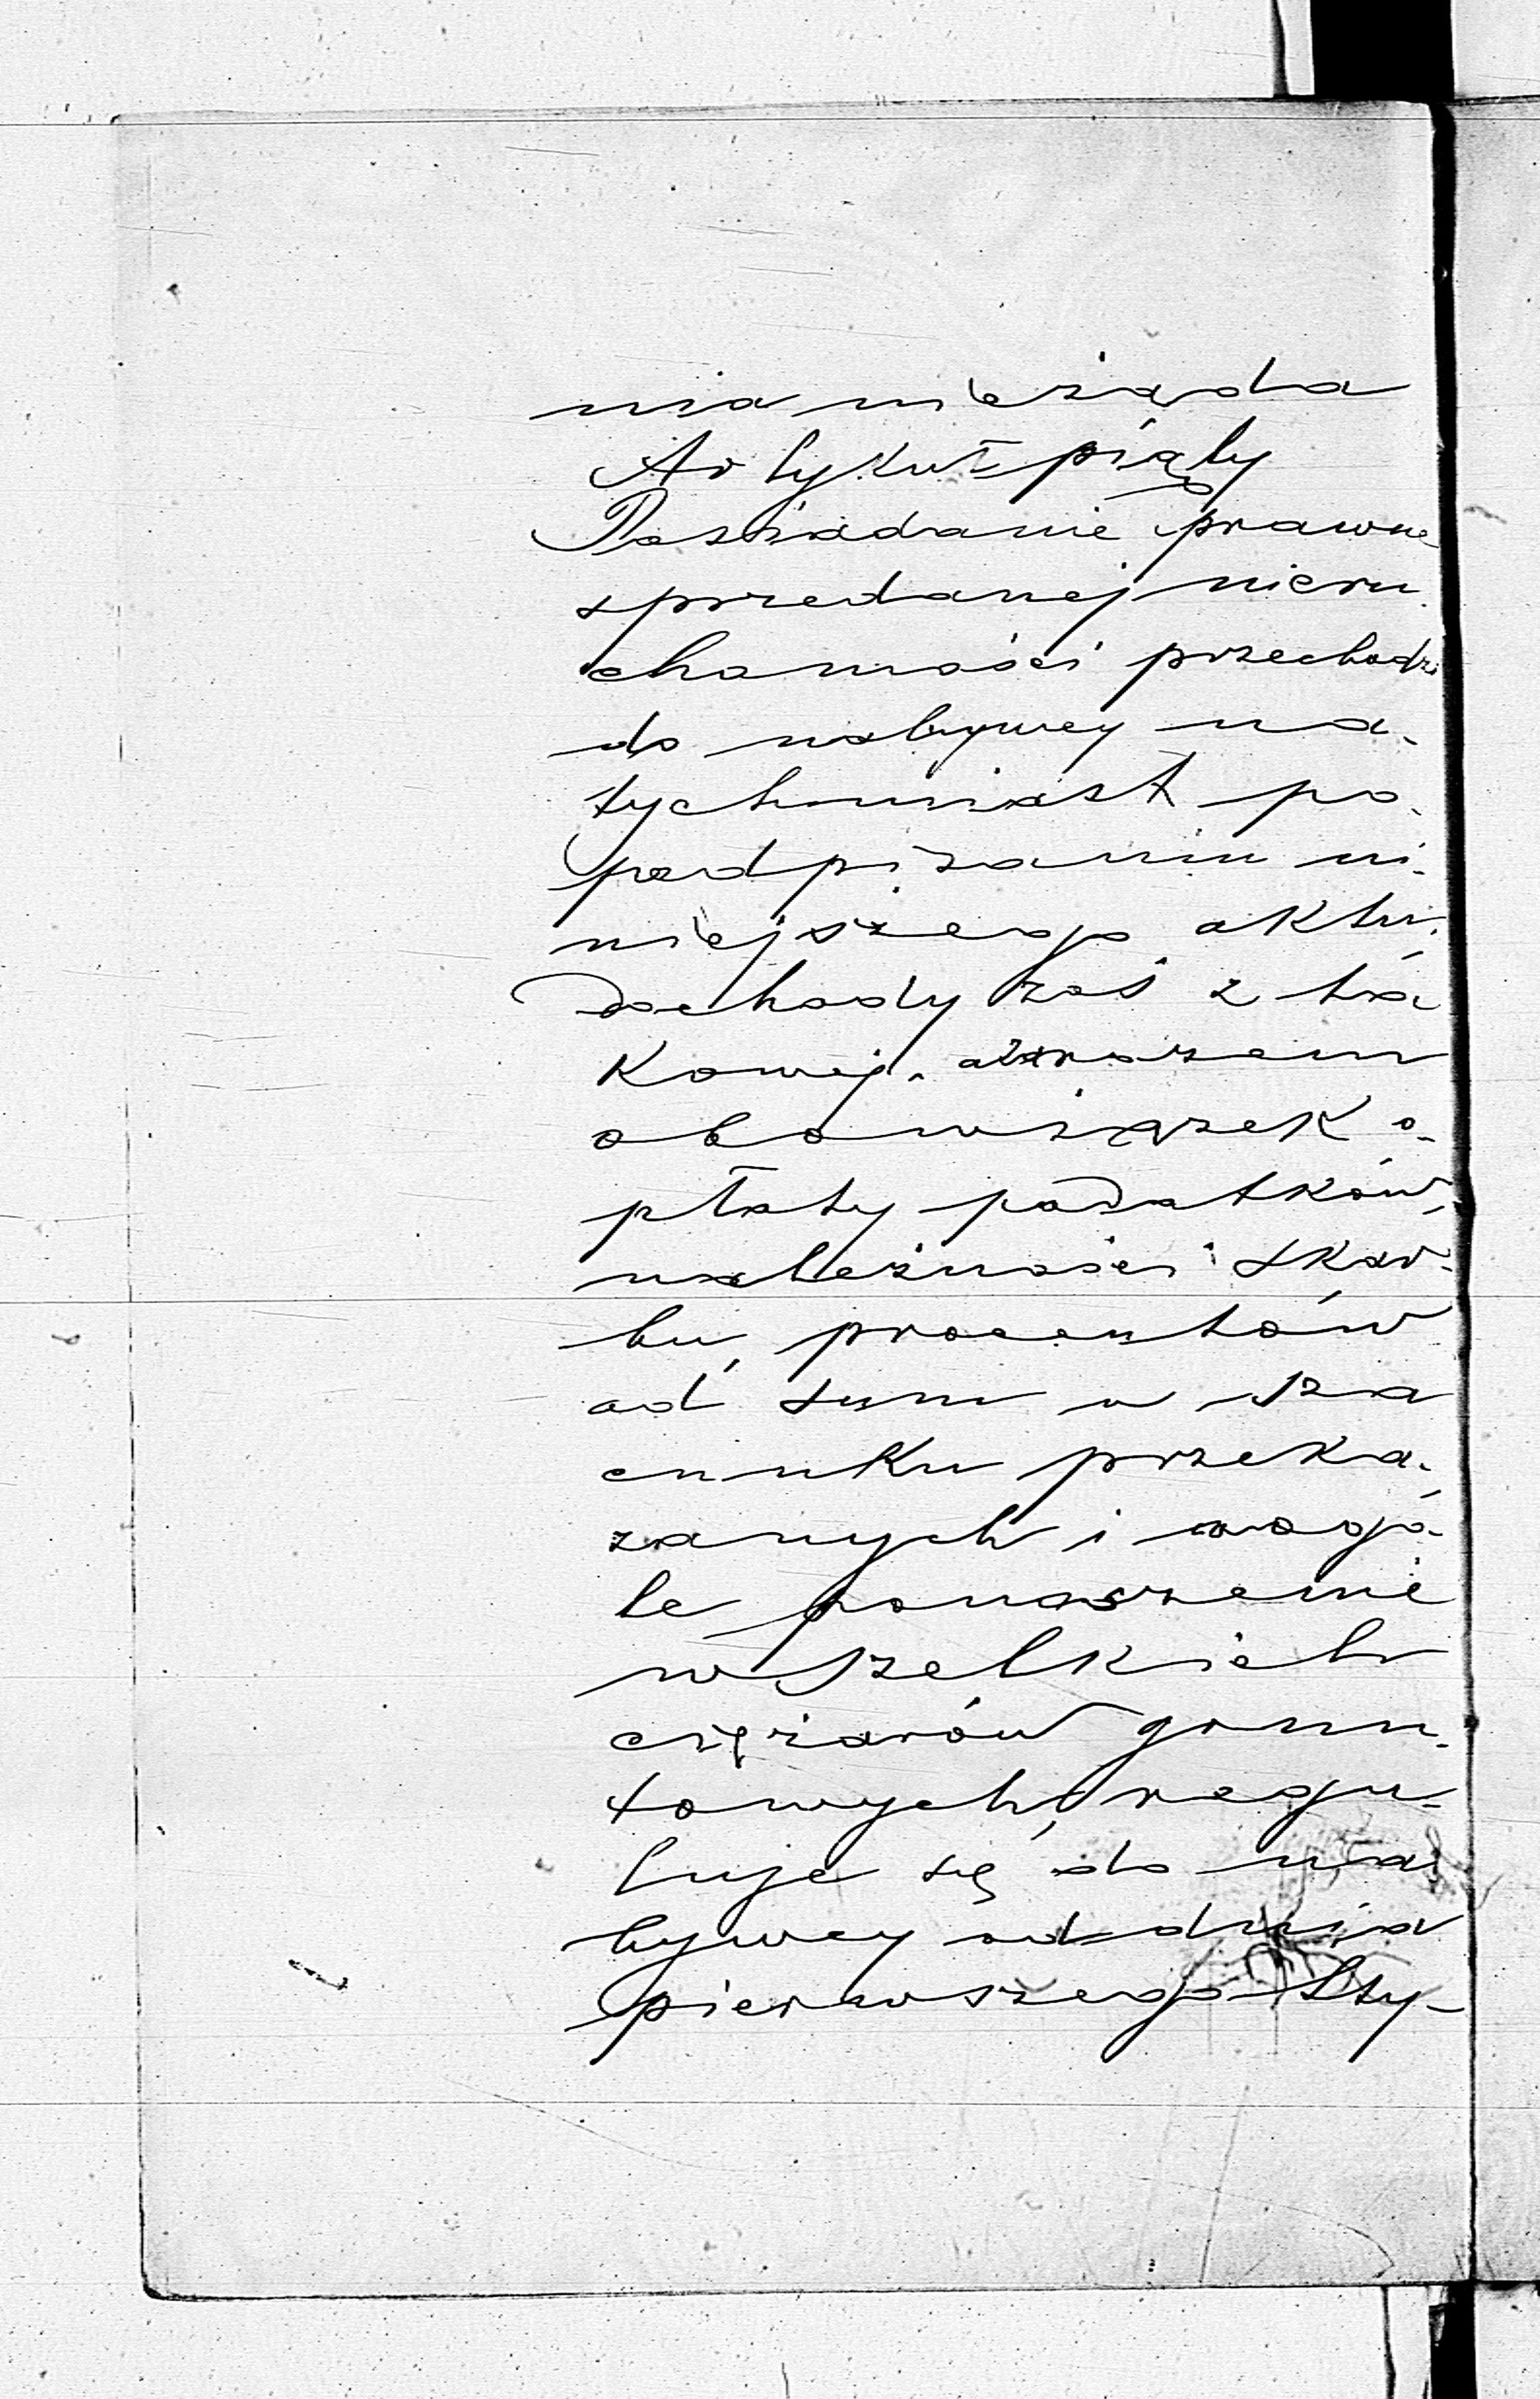 nia nie żąda
Artykuł piąty
Posiadanie prawne
sprzedanej nieru-
chomości przechodzi
do nabywcy na-
tychmiast po
podpisaniu ni-
niejszego aktu.
Dochody zaś z ta
kowej, a zarazem
obowiązek o-
płaty podatków,
należności skar-
bu, procentów
od sum w sza
cunku przeka-
zanych i w ogó-
le ponoszenie
wszelkich
ciężarów grun-
towych, regu-
luje się do na
bywcy od dnia
pierwszego Sty-